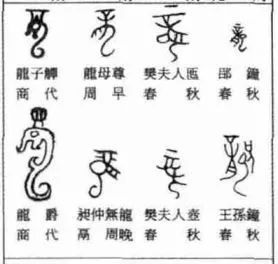 龍子觶 龍母尊 樊夫人匜 郘鐘
商代 周早 春秋 春秋
龍爵 昶仲無龍 樊夫人壺 王孫鐘
商代 鬲 周晚 春秋 春秋